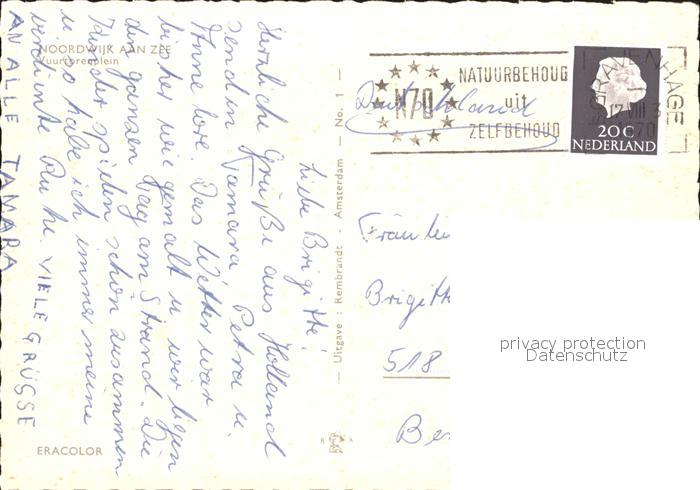 NOORDWIJK AAN ZEE
Vuurtorenplein
Liebe Brigitte.
Herzliche Grüße aus Holland
senden Tamara Petra u.
Anne lore. Das Wetter war
bisher wie gemalt u wir liegen
den ganzen Tag am Strand. Die
Kinder spielen schön zusammen
u. so habe ich immer meine
verdiente Ruhe. VIELE GRÜSSE
AN ALLE TAMARA
ERACOLOR
Uitgave: Rembrandt - Amsterdam - No. 1 -
NATUURBEHOUD
N70
uit
ZELFBEHOUD
Deutschland
'S-GRAVENHAGE
1
17 VIII
70
20 C
NEDERLAND
Fräulei
Brigitt
518
Be
privacy protection
Datenschutz